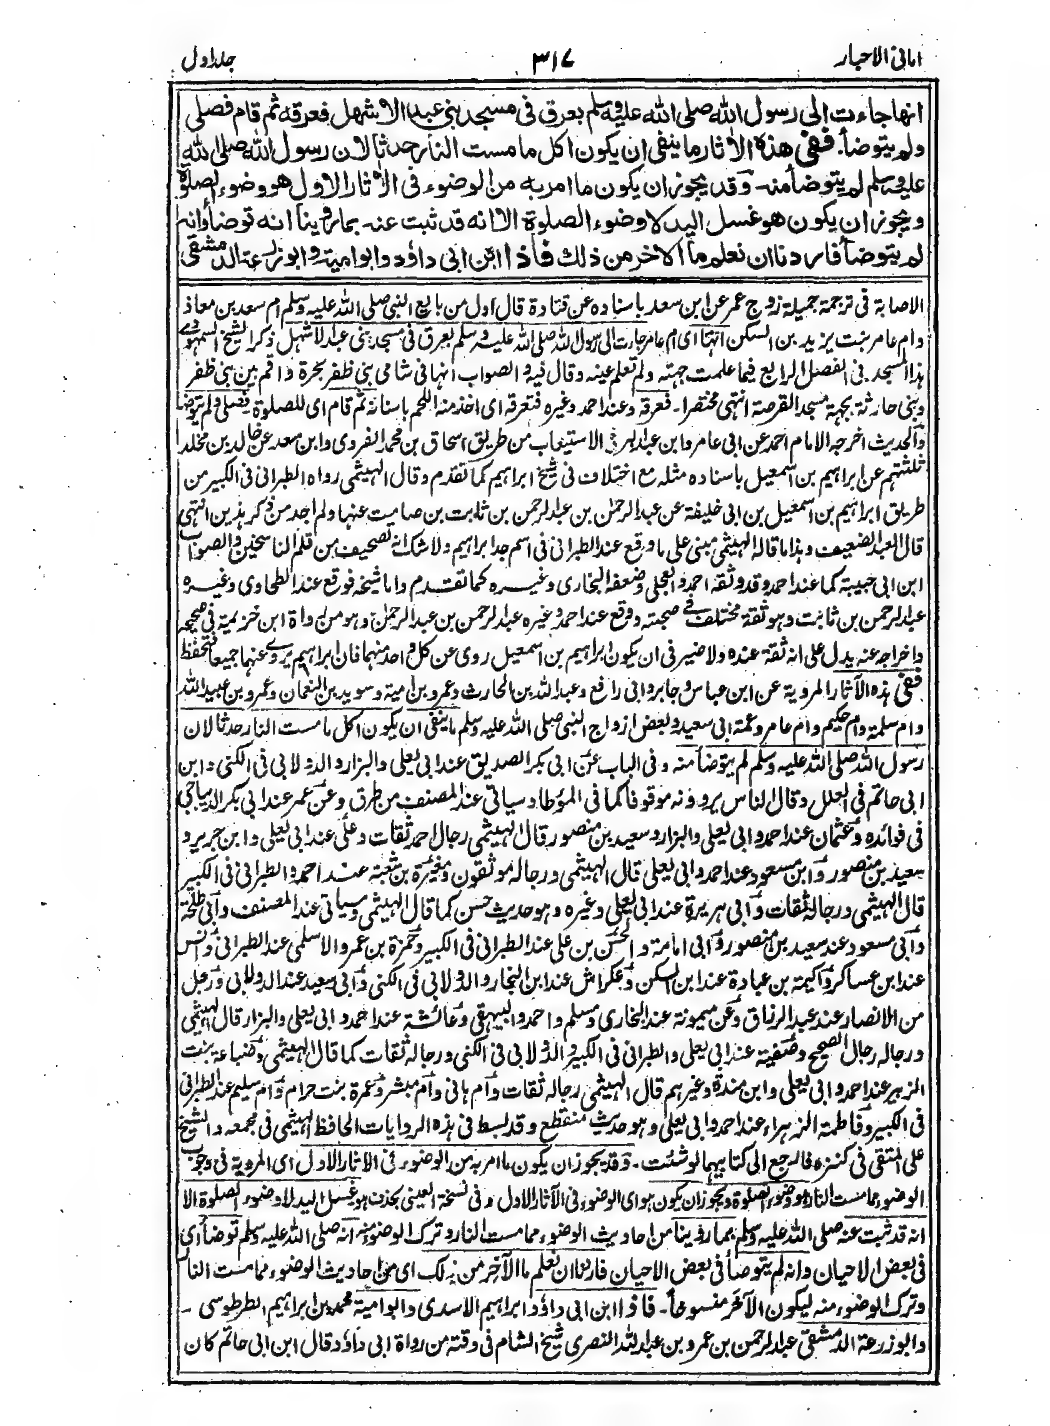 امانی الاحبار
۳۱۷
جلد اول
انها جاءت الى رسول الله صلى الله عليه وسلم بعرق فى مسجد بنى عبد الاشهل فعرقه ثم قام فصلى
ولم يتوضأ ففى هذه الآثار ما ينفى ان يكون اكل ما مست النار حدثا لان رسول الله صلى الله
عليه وسلم لم يتوضأ منه وقد يجوز ان يكون ما امر به من الوضوء فى الآثار الاول هو وضوء الصلوة
ويجوز ان يكون هو غسل اليد لا وضوء الصلوة الا انه قد ثبت عنه بما روينا انه توضأ وانه
لم يتوضأ فاردنا ان نعلم ما الآخر من ذلك فاذا ابن ابى داؤد وابو امية وابو زرعة الدمشقى
الاصابة فى ترجمة جميلة زوج عمر عن ابن سعد باسناده عن قتادة قال اول من بايع النبى صلى الله عليه وسلم ام سعد بن معاذ
وام عامر بنت يزيد بن السكن انتهى اى ام عامر جاءت الى رسول الله صلى الله عليه وسلم بعرق فى مسجد بنى عبد الاشهل ذكر الشيخ السمهودى
هذا المسجد فى الفصل الرابع فيما علمت جهته ولم تعلم عينه وقال فيه والصواب انها فى شامى بنى ظفر بحرة واقم بين بنى ظفر
وبنى حارثة بجهة مسجد القرصة انتهى مختصرا ۔ فعرقه وعند احمد وغيره فتعرقه اى اخذ منه اللحم باسنانه ثم قام اى للصلوة فصلى ولم يتوضأ
والحديث اخرجه الامام احمد عن ابى عامر وابن عبد البر فى الاستيعاب من طريق اسحاق بن محمد الفروى وابن سعد عن خالد بن مخلد
ثلثتهم عن ابراهيم بن اسمعيل باسناده مثله مع اختلاف فى شيخ ابراهيم كما تقدم وقال الهيثمى رواه الطبرانى فى الكبير من
طريق ابراهيم بن اسمعيل بن ابى خليفة عن عبد الرحمن بن عبد الرحمن بن ثابت بن صامت عنها ولم اجد من ذكر هذين انتهى
قال العبد الضعيف وهذا ما قاله الهيثمى مبنى على ما وقع عند الطبرانى فى اسم جد ابراهيم ولا شك انه تصحيف من قلم الناسخين والصواب
ابن ابى حبيبة كما عند احمد وقد وثقه احمد والعجلى وضعفه البخارى وغيره كما تقدم واما شيخه فوقع عند الطحاوى وغيره
عبد الرحمن بن ثابت وهو ثقة مختلف فى صحبته ووقع عند احمد وغيره عبد الرحمن بن عبد الرحمن وهو من رواة ابن خزيمة فى صحيحه
واخراجه عنه يدل على انه ثقة عنده ولا ضير فى ان يكون ابراهيم بن اسمعيل روى عن كل واحد منهما فان ابراهيم يروى عنهما جميعا فتحفظ
ففى هذه الآثار المروية عن ابن عباس وجابر وابى رافع وعبد الله بن الحارث وعمرو بن امية وسويد بن النعمان وعمرو بن عبيد الله
وام سلمة وام حكيم وام عامر وعمة ابى سعيد وبعض ازواج النبى صلى الله عليه وسلم ما ينفى ان يكون اكل ما مست النار حدثا لان
رسول الله صلى الله عليه وسلم لم يتوضأ منه وفى الباب عن ابى بكر الصديق عند ابى يعلى والبزار والدولابى فى الكنى وابن
ابى حاتم فى العلل وقال الناس يروونه موقوفا كما فى المؤطا وسياتى عند المصنف من طرق وعن عمر عند ابى بكر الديباجى
فى فوائده وعثمان عند احمد وابى يعلى والبزار وسعيد بن منصور قال الهيثمى رجال احمد ثقات وعلى عند ابى يعلى وابن جرير و
سعيد بن منصور وابن مسعود عند احمد وابى يعلى قال الهيثمى ورجاله موثقون ومغيرة بن شعبة عند احمد والطبرانى فى الكبير
قال الهيثمى ورجاله ثقات وابى هريرة عند ابى يعلى وغيره وهو حديث حسن كما قال الهيثمى وسياتى عند المصنف وابى طلحة
وابى مسعود عند سعيد بن منصور وابى امامة والحسن بن على عند الطبرانى فى الكبير وحمزة بن عمرو الاسلمى عند الطبرانى وانس
عند ابن عساكر واكيمة بن عبادة عند ابن السكن وعكراش عند ابن النجار والدولابى فى الكنى وابى سعيد عند الدولابى ورجل
من الانصار عند عبد الرزاق وعن ميمونة عند البخارى ومسلم واحمد والبيهقى وعائشة عند احمد وابى يعلى والبزار قال الهيثمى
ورجاله رجال الصحيح وصفية عند ابى يعلى والطبرانى فى الكبير والدولابى فى الكنى ورجاله ثقات كما قال الهيثمى وضباعة بنت
الزبير عند احمد وابى يعلى وابن مندة وغيرهم قال الهيثمى رجاله ثقات وام هانى وام مبشر وعمرة بنت حرام وام سليم عند الطبرانى
فى الكبير وفاطمة الزهراء عند احمد وابى يعلى وهو حديث منقطع وقد بسط فى هذه الروايات الحافظ الهيثمى فى مجمعه والشيخ
على المتقى فى كنزه فارجع الى كتابيهما لو شئت ۔ وقد يجوز ان يكون ما امر به من الوضوء فى الآثار الاول اى المروية فى وجوب
الوضوء مما مست النار هو وضوء الصلوة ويجوز ان يكون هو اى الوضوء فى الآثار الاول وفى نسخة العينى بحذف هو غسل اليد لا وضوء الصلوة الا
انه قد ثبت عنه صلى الله عليه وسلم بما روينا من احاديث الوضوء مما مست النار وترك الوضوء منه انه صلى الله عليه وسلم توضأ اى
فى بعض الاحيان وانه لم يتوضأ فى بعض الاحيان فاردنا ان نعلم ما الآخر من ذلك اى من احاديث الوضوء مما مست النار
وترك الوضوء منه ليكون الآخر منسوخا ۔ فاذا ابن ابى داؤد ابراهيم الاسدى وابو امية محمد بن ابراهيم الطرطوسى ۔
وابو زرعة الدمشقى عبد الرحمن بن عمرو بن عبد الله النصرى شيخ الشام فى وقته من رواة ابى داؤد وقال ابن ابى حاتم كان